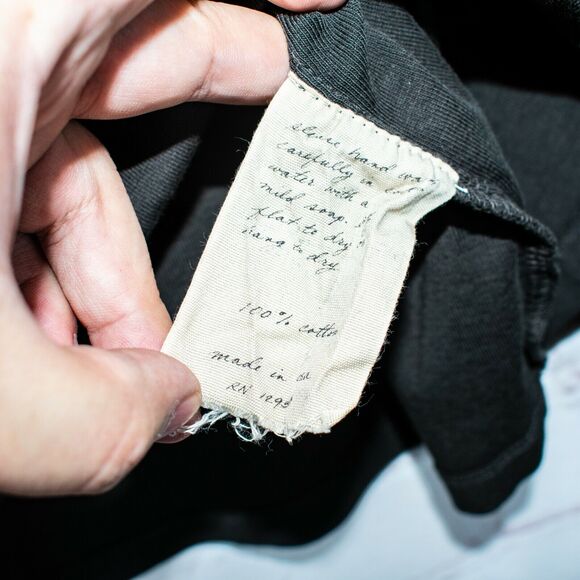 please hand wa
carefully in
water with a
mild soap.
flat to dry
hang to dry
100% cotto
made in
RN 1293